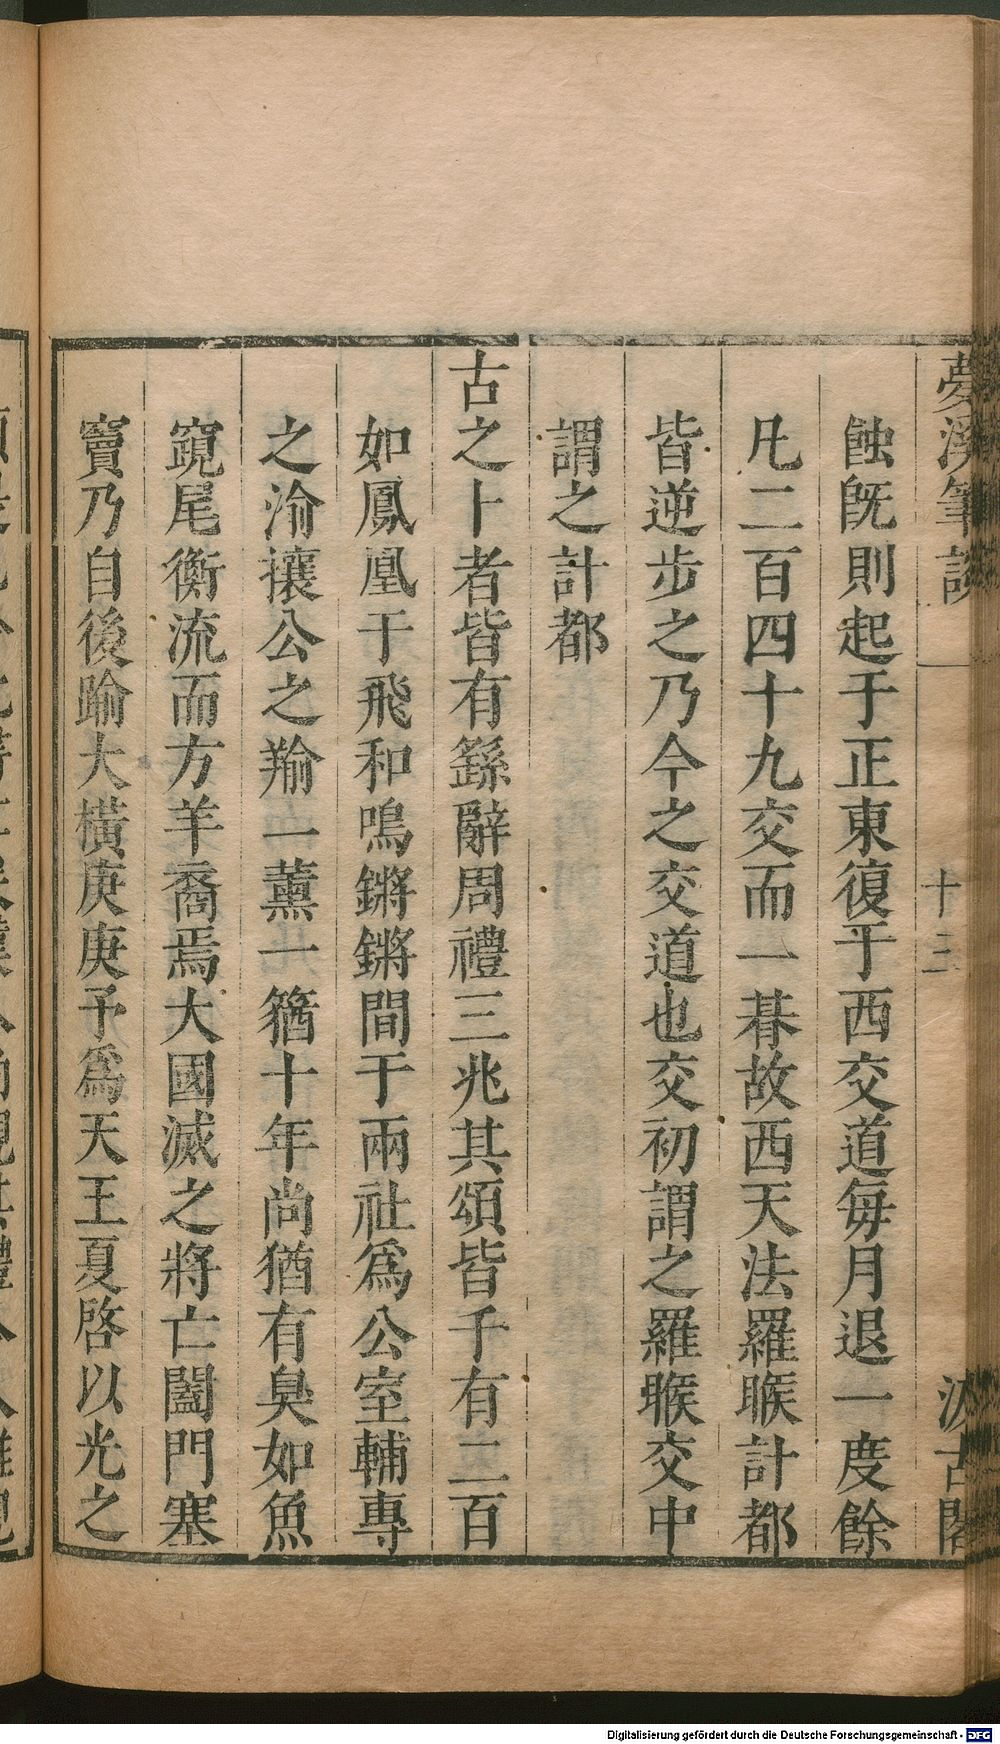 夢溪筆談 十三 汲古閣
蝕旣則起于正東復于西交道每月退一度餘
凡二百四十九交而一朞故西天法羅睺計都
皆逆步之乃今之交道也交初謂之羅睺交中
謂之計都
古之卜者皆有繇辭周禮三兆其頌皆千有二百
如鳳凰于飛和鳴鏘鏘間于兩社爲公室輔專
之渝攘公之羭一薰一蕕十年尚猶有臭如魚
竀尾衡流而方羊裔焉大國滅之將亡闔門塞
竇乃自後踰大橫庚庚予爲天王夏啓以光之
Digitalisierung gefördert durch die Deutsche Forschungsgemeinschaft - DFG